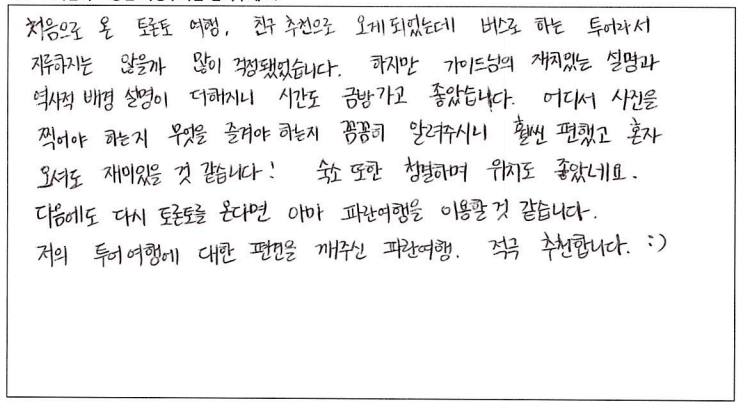 처음으로 온 토론토 여행, 친구 추천으로 오게 되었는데 버스로 하는 투어라서
지루하지는 않을까 많이 걱정됐었습니다. 하지만 가이드님의 재치있는 설명과
역사적 배경 설명이 더해지니 시간도 금방가고 좋았습니다. 어디서 사진을
찍어야 하는지 무엇을 즐겨야 하는지 꼼꼼히 알려주시니 훨씬 편했고 혼자
오셔도 재미있을 것 같습니다! 숙소 또한 청결하며 위치도 좋았네요.
다음에도 다시 토론토를 온다면 아마 파란여행을 이용할 것 같습니다.
저의 투어여행에 대한 편견을 깨주신 파란여행. 적극 추천합니다. :)